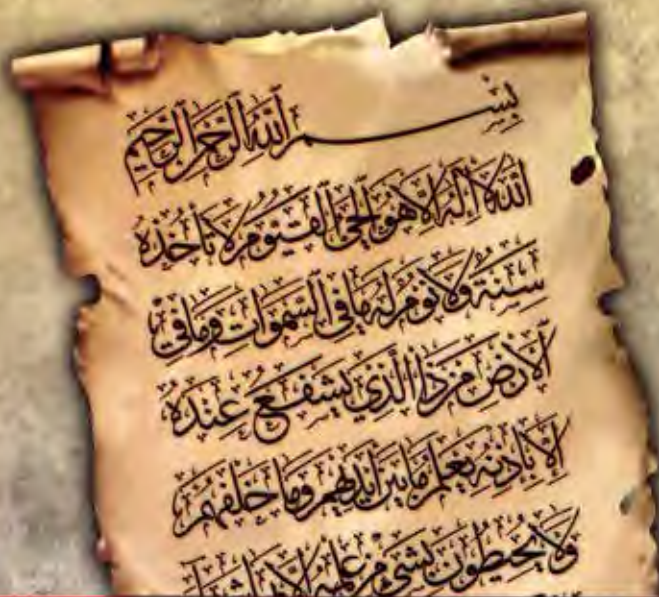 بِسْمِ اللَّهِ الرَّحْمَٰنِ الرَّحِيمِ
اللَّهُ لَا إِلَٰهَ إِلَّا هُوَ الْحَيُّ الْقَيُّومُ لَا تَأْخُذُهُ
سِنَةٌ وَلَا نَوْمٌ لَهُ مَا فِي السَّمَوَاتِ وَمَا فِي
الْأَرْضِ مَنْ ذَا الَّذِي يَشْفَعُ عِنْدَهُ
إِلَّا بِإِذْنِهِ يَعْلَمُ مَا بَيْنَ أَيْدِيهِمْ وَمَا خَلْفَهُمْ
وَلَا يُحِيطُونَ بِشَيْءٍ مِنْ عِلْمِهِ إِلَّا بِمَا شَاءَ